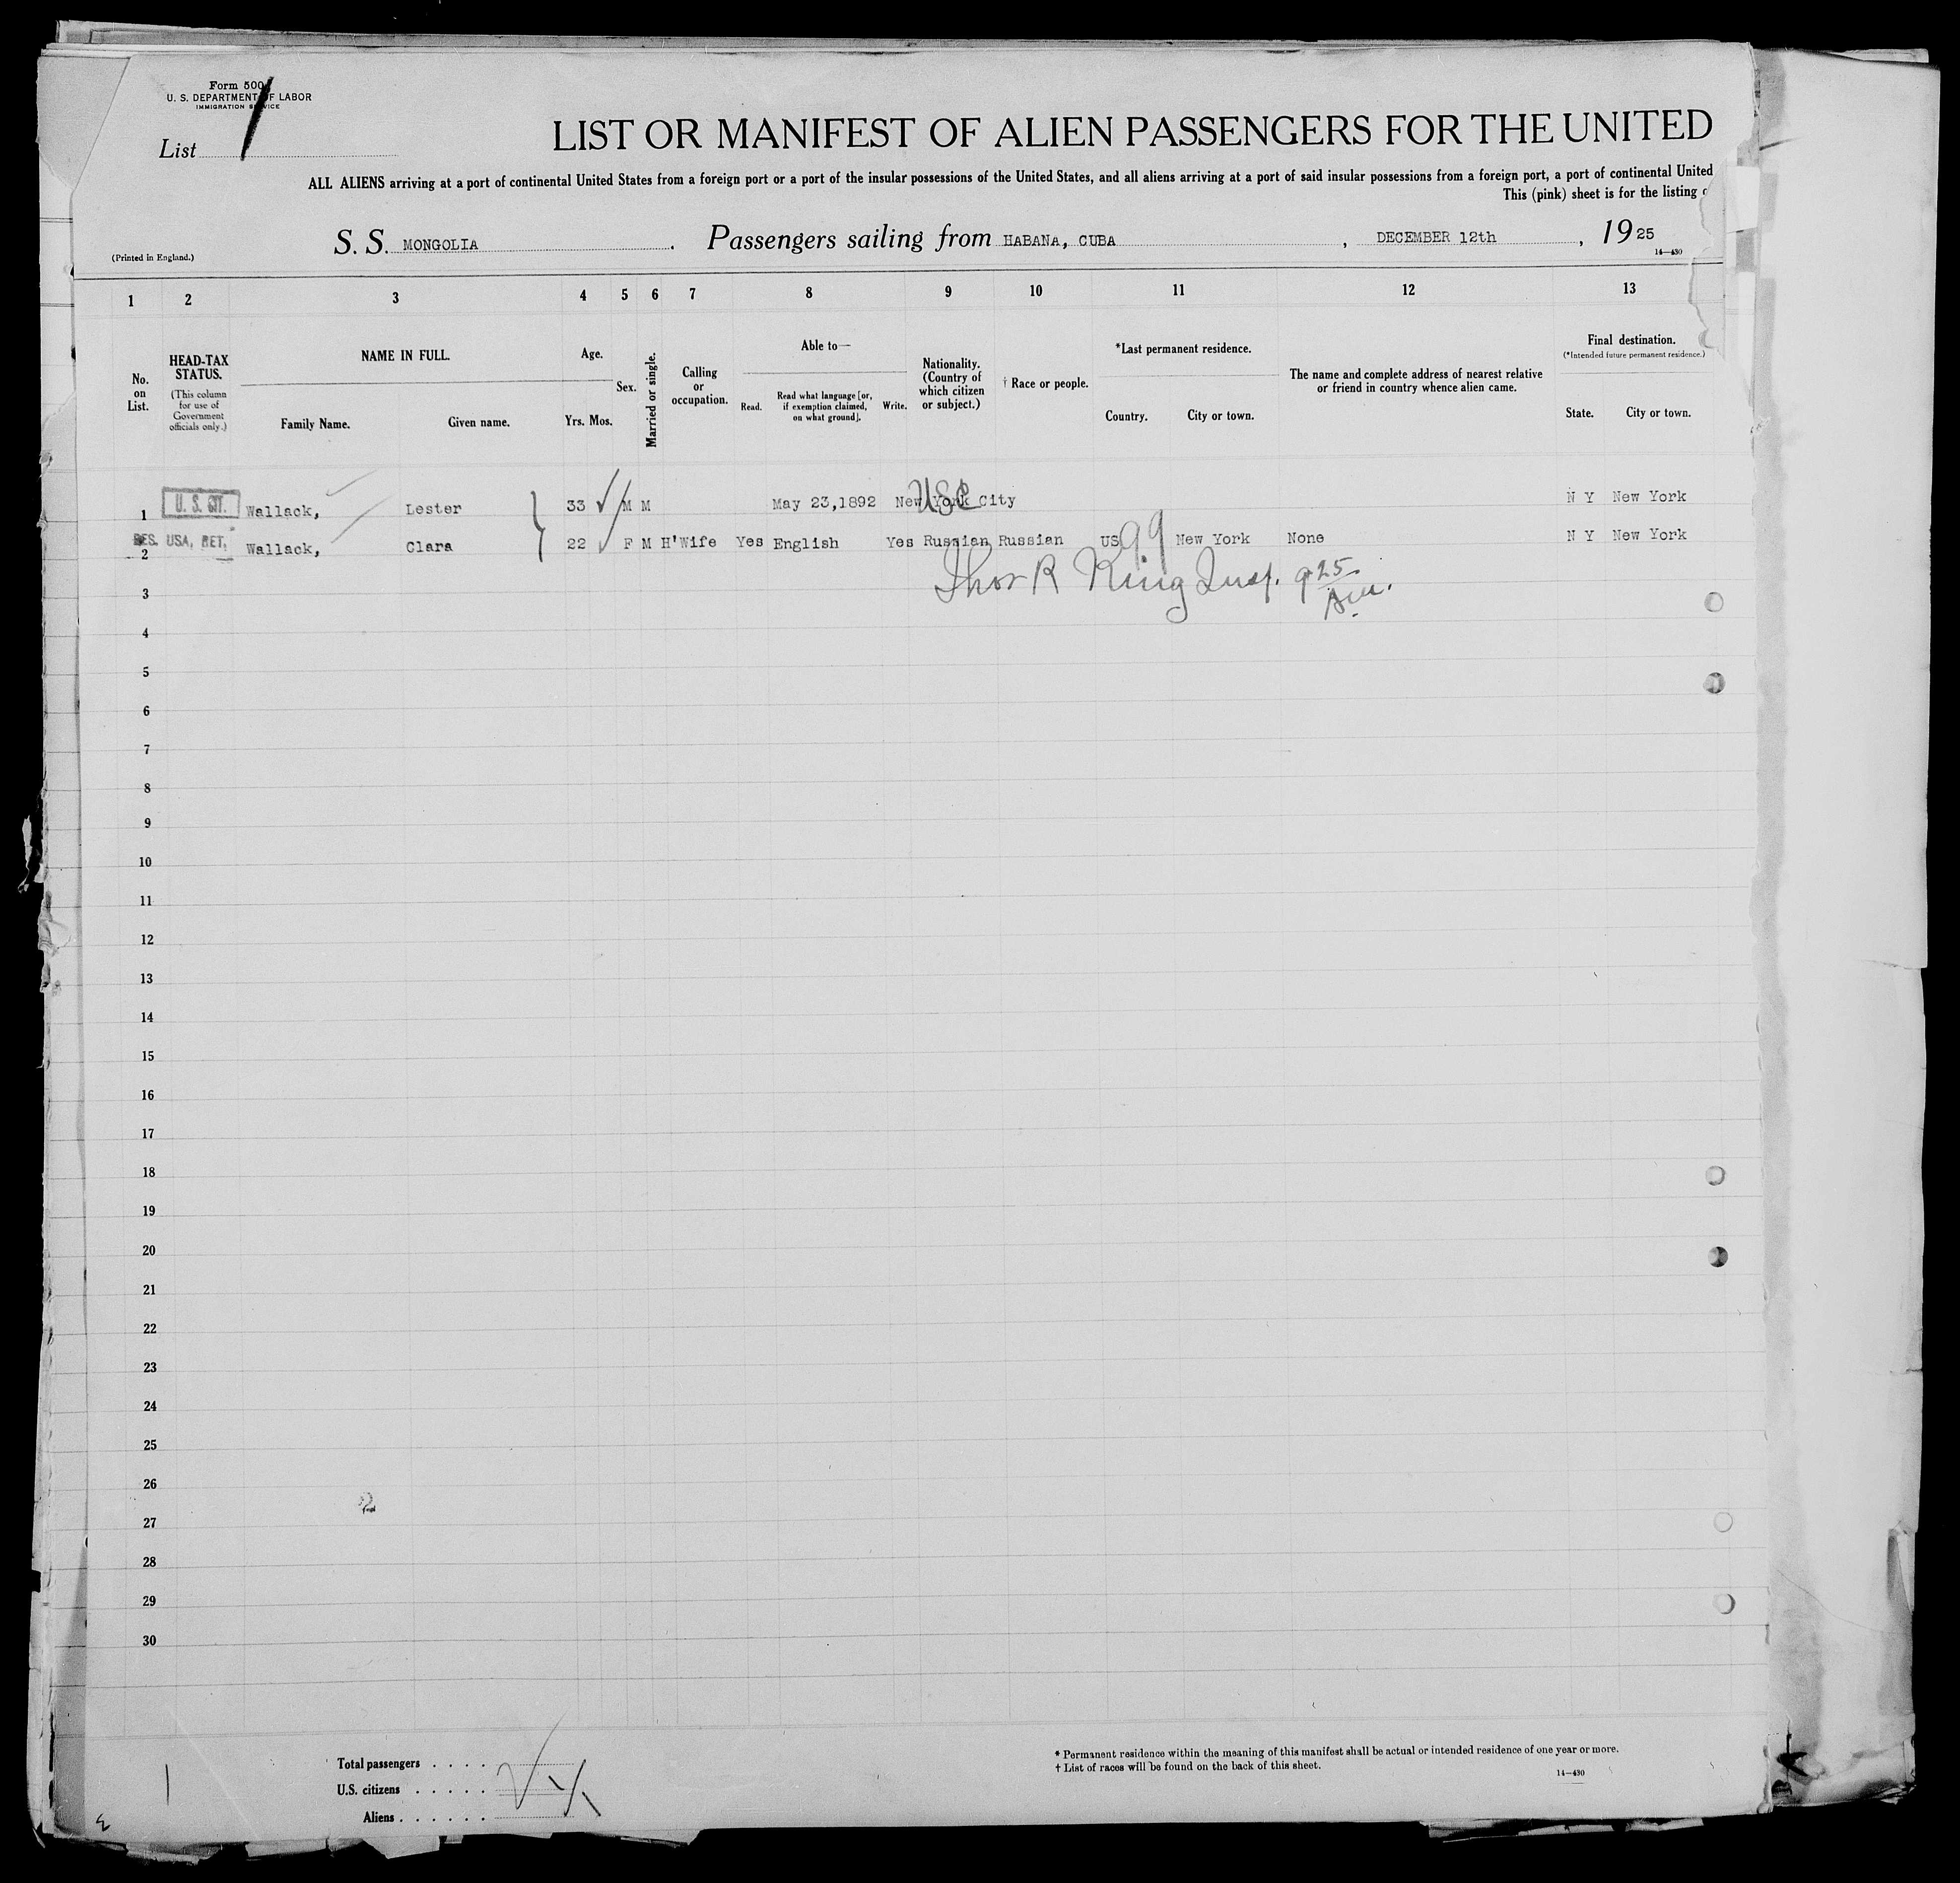 Form 500
U. S. DEPARTMENT OF LABOR
IMMIGRATION SERVICE
List 1
LIST OR MANIFEST OF ALIEN PASSENGERS FOR THE UNITED
ALL ALIENS arriving at a port of continental United States from a foreign port or a port of the insular possessions of the United States, and all aliens arriving at a port of said insular possessions from a foreign port, a port of continental United
This (pink) sheet is for the listing
S. S. MONGOLIA. Passengers sailing from HABANA, CUBA, DECEMBER 12th, 1925
(Printed in England.)
14—430
1 2 3 4 5 6 7 8 9 10 11 12 13
No. on List.
HEAD-TAX STATUS.
(This column for use of Government officials only.)
NAME IN FULL.
Family Name. Given name.
Age.
Yrs. Mos.
Sex.
Married or single.
Calling or occupation.
Able to—
Read. Read what language [or, if exemption claimed, on what ground]. Write.
Nationality. (Country of which citizen or subject.)
† Race or people.
*Last permanent residence.
Country. City or town.
The name and complete address of nearest relative or friend in country whence alien came.
Final destination.
(*Intended future permanent residence.)
State. City or town.
1 U. S. CIT. Wallack, Lester 33 M M May 23,1892 New York City USC N Y New York
2 RES. USA, RET. Wallack, Clara 22 F M H'Wife Yes English Yes Russian Russian US 99 New York None N Y New York
Thos R King Insp. 9 25
3
4
5
6
7
8
9
10
11
12
13
14
15
16
17
18
19
20
21
22
23
24
25
26
27
28
29
30
Total passengers . . . .
U.S. citizens . . . . .
Aliens . . . . . .
* Permanent residence within the meaning of this manifest shall be actual or intended residence of one year or more.
† List of races will be found on the back of this sheet.
14—430